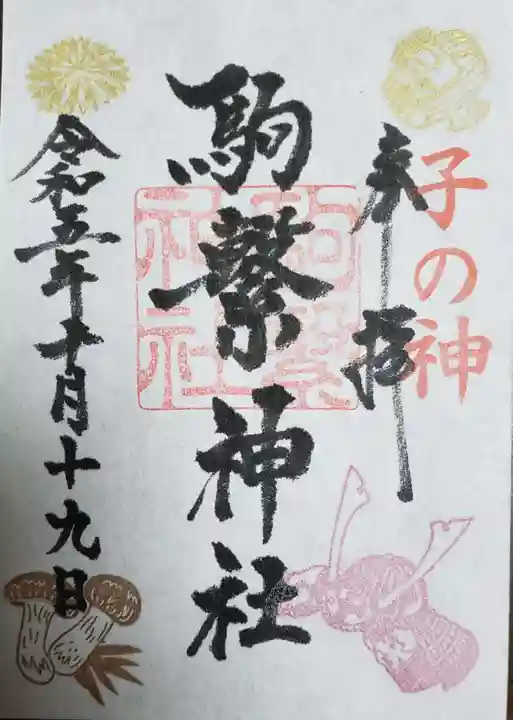 子の神
奉拝
駒繋神社
駒繋
神社
令和五年十月十九日